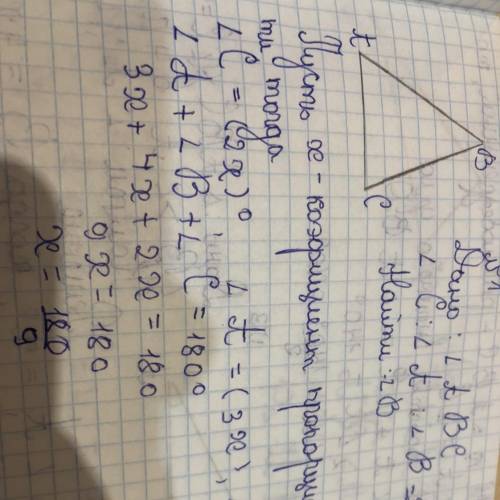 №1
Дано: ∠ABC
∠C:∠A:∠B=
Найти: ∠B
B
A
C
Пусть x - коэффициент пропорци
ти тогда
∠C = (2x)° ∠A = (3x)°,
∠A + ∠B + ∠C = 180°
3x + 4x + 2x = 180
9x = 180
x = 180/9